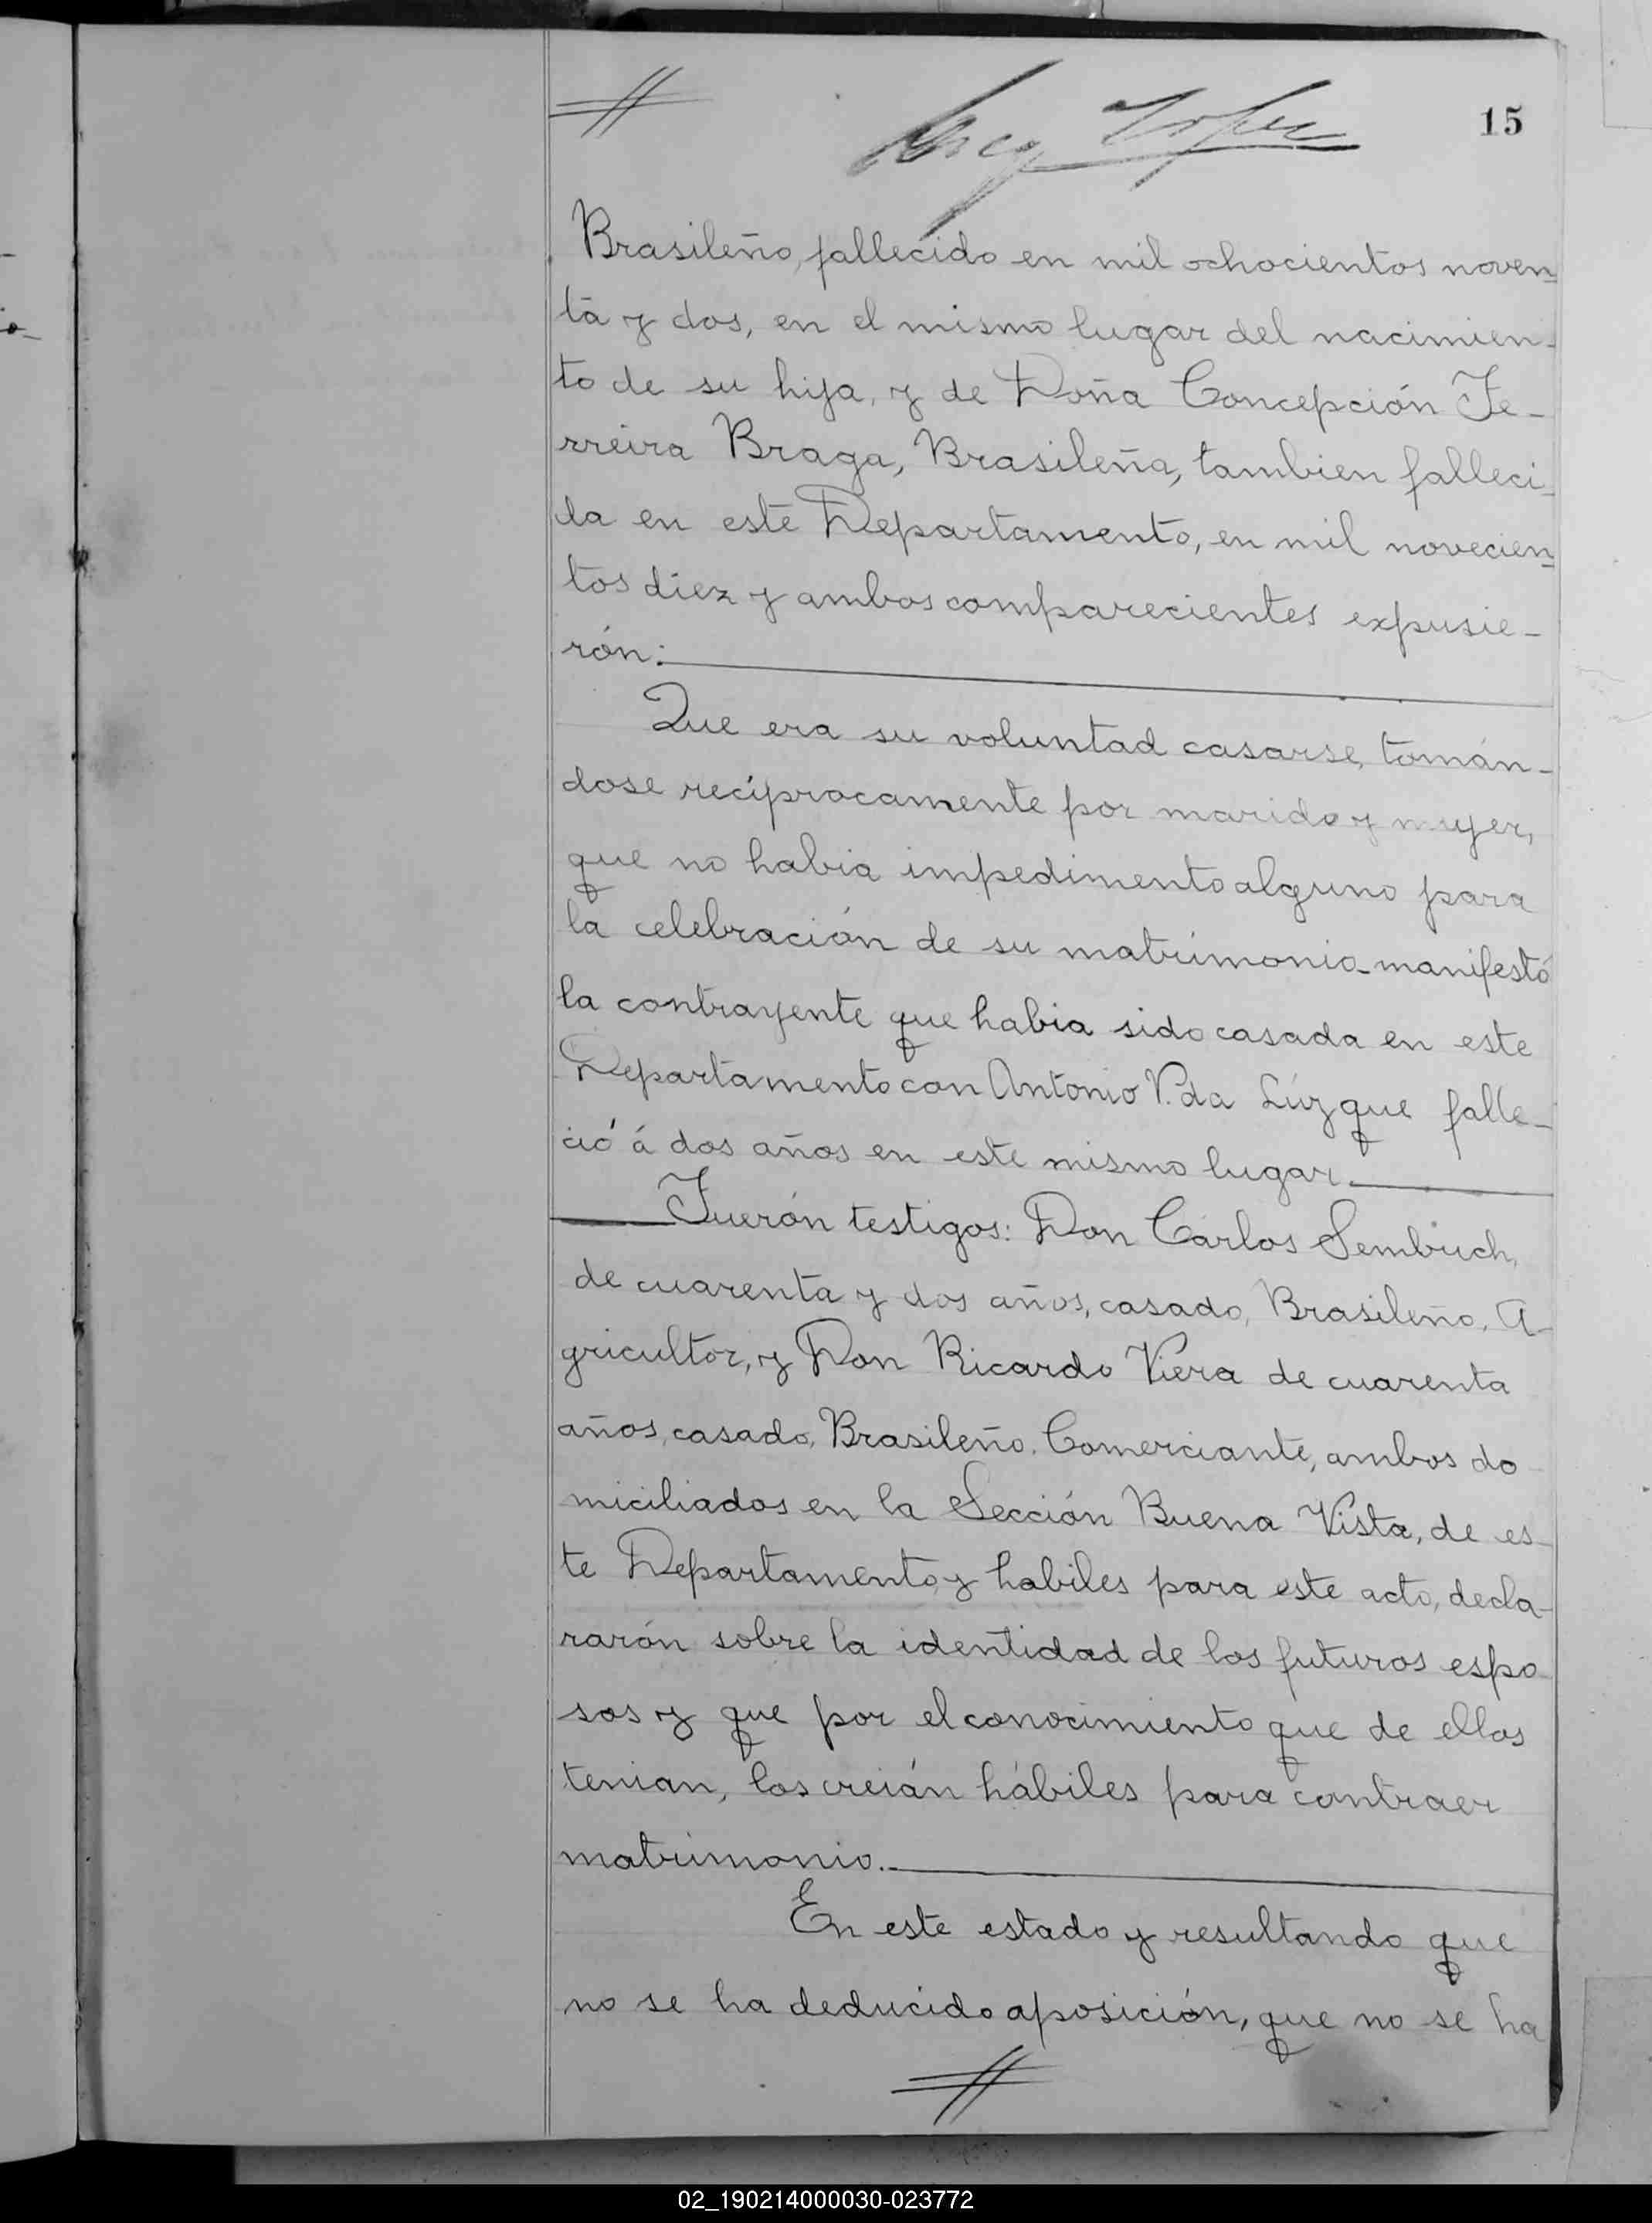 15
Brasileño, fallecido en mil ochocientos noven-
ta y dos, en el mismo lugar del nacimien-
to de su hija, y de Doña Concepción Fe-
rreira Braga, Brasileña, tambien falleci-
da en este Departamento, en mil novecien-
tos diez y ambos comparecientes expusie-
rón:
Que era su voluntad casarse, tomán-
dose recíprocamente por marido y mujer,
que no habia impedimento alguno para
la celebración de su matrimonio_manifestó
la contrayente que habia sido casada en este
Departamento con Antonio V. da Lúz que falle-
ció á dos años en este mismo lugar.
Fuerón testigos: Don Carlos Sembuch,
de cuarenta y dos años, casado, Brasileño, A-
gricultor, y Don Ricardo Viera de cuarenta
años, casado, Brasileño, Comerciante, ambos do
miciliados en la Sección Buena Vista, de es-
te Departamento, y habiles para este acto, decla-
rarón sobre la identidad de los futuros espo-
sos y que por el conocimiento que de ellos
tenian, los creián hábiles para contraer
matrimonio.
En este estado y resultando que
no se ha deducido aposición, que no se ha
02_190214000030-023772